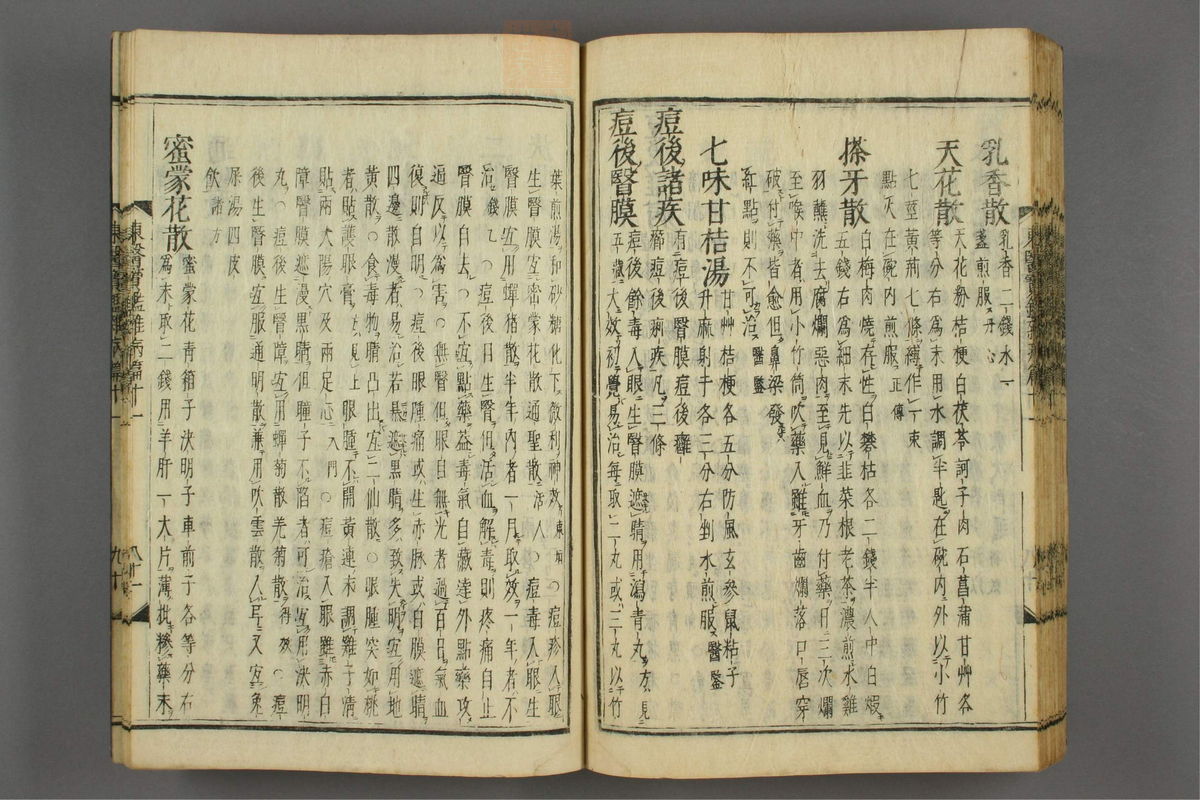 乳香散乳香二錢水一
盞煎服
天花散天花粉桔梗白茯苓訶子肉石菖蒲甘艸各
等分右爲末用水調半匙在碗內外以小竹
七莖黃荊七條縛作一束
點火在碗內煎服正傳
搽牙散白梅肉燒存性白礬枯各二錢半人中白煆
五錢右爲細末先以韭菜根老茶濃煎水雞
羽蘸洗去腐爛惡肉至見鮮血乃付藥日三次爛
至喉中者用小竹筒吹藥入雖牙齒爛落口唇穿
破付藥皆愈但鼻梁發
紅點則不可治醫鑒
七味甘桔湯甘艸桔梗各五分防風玄參鼠粘子
升麻射干各三分右剉水煎服醫鑒
痘後諸疾有痘後瞖膜痘後癰
癤痘後痢疾凡三條
痘後瞖膜痘後餘毒入眼生瞖膜遮睛用瀉青丸方見
五藏大效初覺易治每取二丸或三丸以竹
葉煎湯和砂糖化下微利神效東垣○痘疹入眼
生瞖膜宜密蒙花散通聖散活人○痘毒入眼生
瞖膜宜用蟬猪散半年內者一月取效一年者不
治錢乙○痘後目生瞖但活血解毒則疼痛自止
瞖膜自去○不宜點藥益毒氣自藏達外點藥攻
通反以爲害○但眼自無光者過百日氣血
復則自明○痘後眼腫痛或生赤脉或白膜遮睛
四邊散漫者易治若暴遮黑睛多致失明宜用地
黃散○食毒物睛凸出宜二仙散○眼腫突如桃
者貼護眼膏方見上眼睡不開黃連末調雞子清
貼兩太陽穴及兩足心入門○痘瘡入眼雖赤白
障瞖膜遮漫黑睛但瞳子不陷者可治宜用決明
丸○痘後生瞖障宜用蟬菊散羌菊散得效○痘
後生瞖膜宜服通明散兼用吹雲散入耳又宜兔
屎湯四皮
飮諸方
密蒙花散蜜蒙花青箱子決明子車前子各等分右
爲末取二錢用羊肝一大片薄批摻藥末
東醫寶鑑雜病篇十一